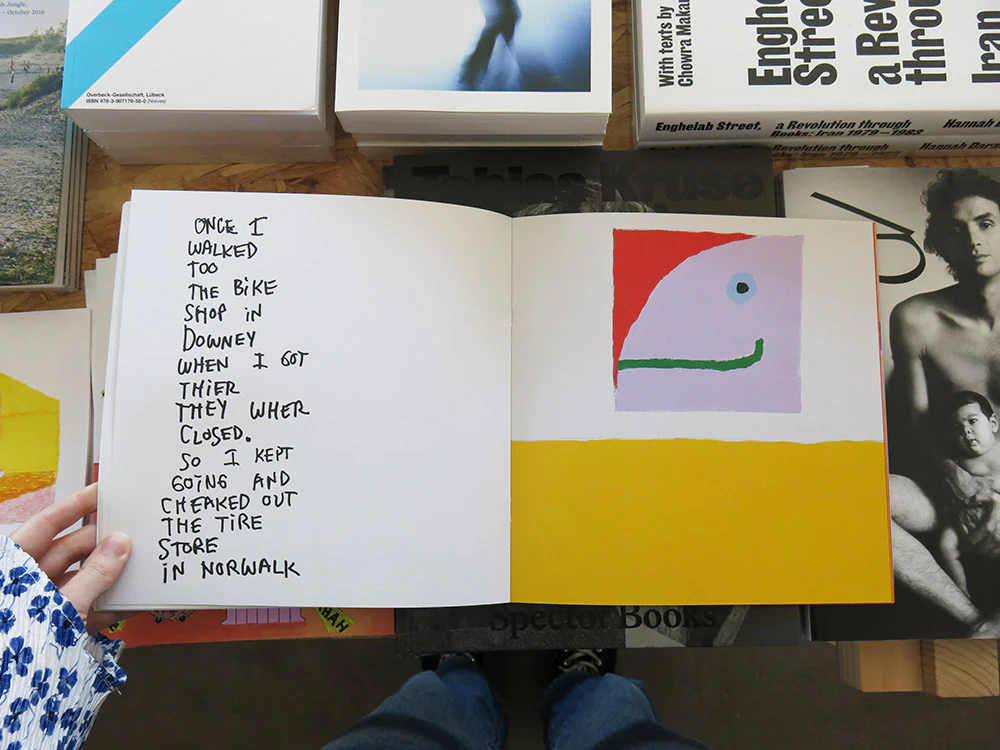 s Jungle,
– October 2018
Overbeck-Gesellschaft, Lübeck
ISBN 978-3-907179-55-0 (Nieves)
With texts by
Chowra Makar
Enghe
Stree
a Rev
throu
Iran
Enghelab Street, a Revolution through
Books: Iran 1979–1983 Hannah
Revolution through
Books: Iran 1979–1983 Hannah Dara
Tobias Kruse
ONCE I
WALKED
TOO
THE BIKE
SHOP IN
DOWNEY
WHEN I GOT
THIER
THEY WHER
CLOSED.
SO I KEPT
GOING AND
CHEAKED OUT
THE TIRE
STORE
IN NORWALK
Spector Books